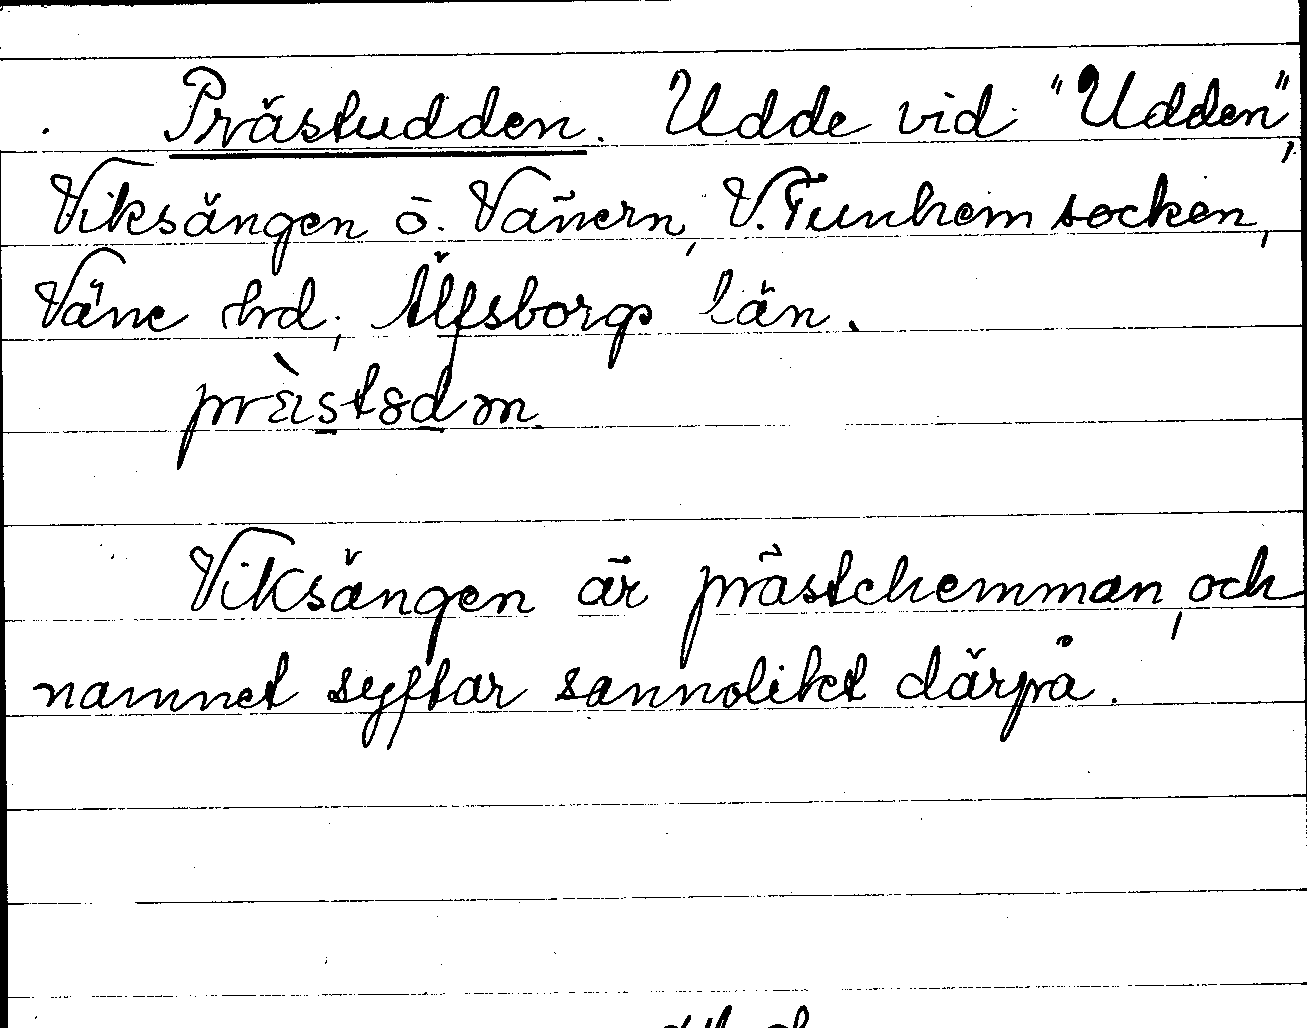 Prästudden. Udde vid "Udden",
Viksängen ö. Vänern, V. Tunhem socken,
Väne hrd, Älfsborgs län.
Viksängen är prästehemman, och
namnet syftar sannolikt därpå.